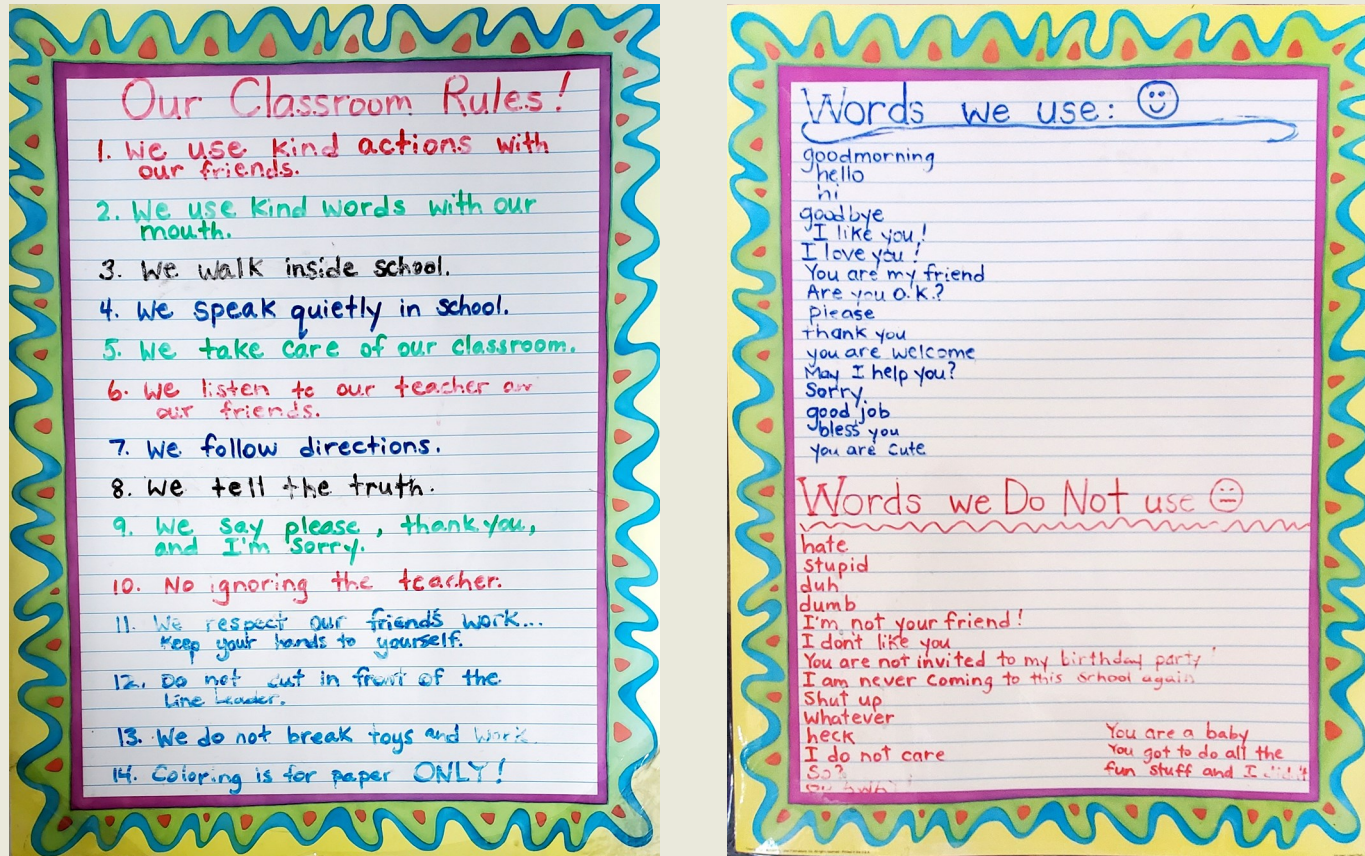 Our Classroom Rules!
1. We use kind actions with
our friends.
2. We use kind words with our
mouth.
3. We walk inside school.
4. We speak quietly in school.
5. We take care of our classroom.
6. We listen to our teacher
our friends.
7. We follow directions.
8. We tell the truth.
9. We say please, thank you,
and I'm sorry.
10. No ignoring the teacher.
11. We respect our friends work...
Keep your hands to yourself.
12. Do not cut in front of the
Line Leader.
13. We do not break toys and work.
14. Coloring is for paper ONLY!
Words we use:
goodmorning
hello
hi
goodbye
I like you!
I love you!
You are my friend
Are you O.K.?
please
thank you
you are welcome
May I help you?
Sorry
good job
bless you
you are cute
Words we Do Not use
hate
stupid
duh
dumb
I'm not your friend!
I don't like you
You are not invited to my birthday party
I am never coming to this school again
Shut up
Whatever
heck
I do not care
So?
You are a baby
You got to do all the
fun stuff and I didn't